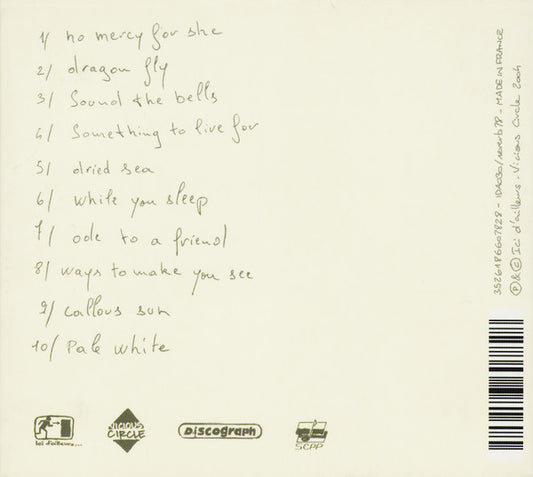 1/ no mercy for she
2/ dragon fly
3/ Sound the bells
4/ Something to live for
5/ dried sea
6/ while you sleep
7/ ode to a friend
8/ ways to make you see
9/ callous sun
10/ Pale white
ici d'ailleurs...
VICIOUS CIRCLE
DiscogRaph
SCPP
3526186607828 - IDA030/reverb78 - MADE IN FRANCE
℗ & © Ici d'ailleurs - Vicious Circle 2004